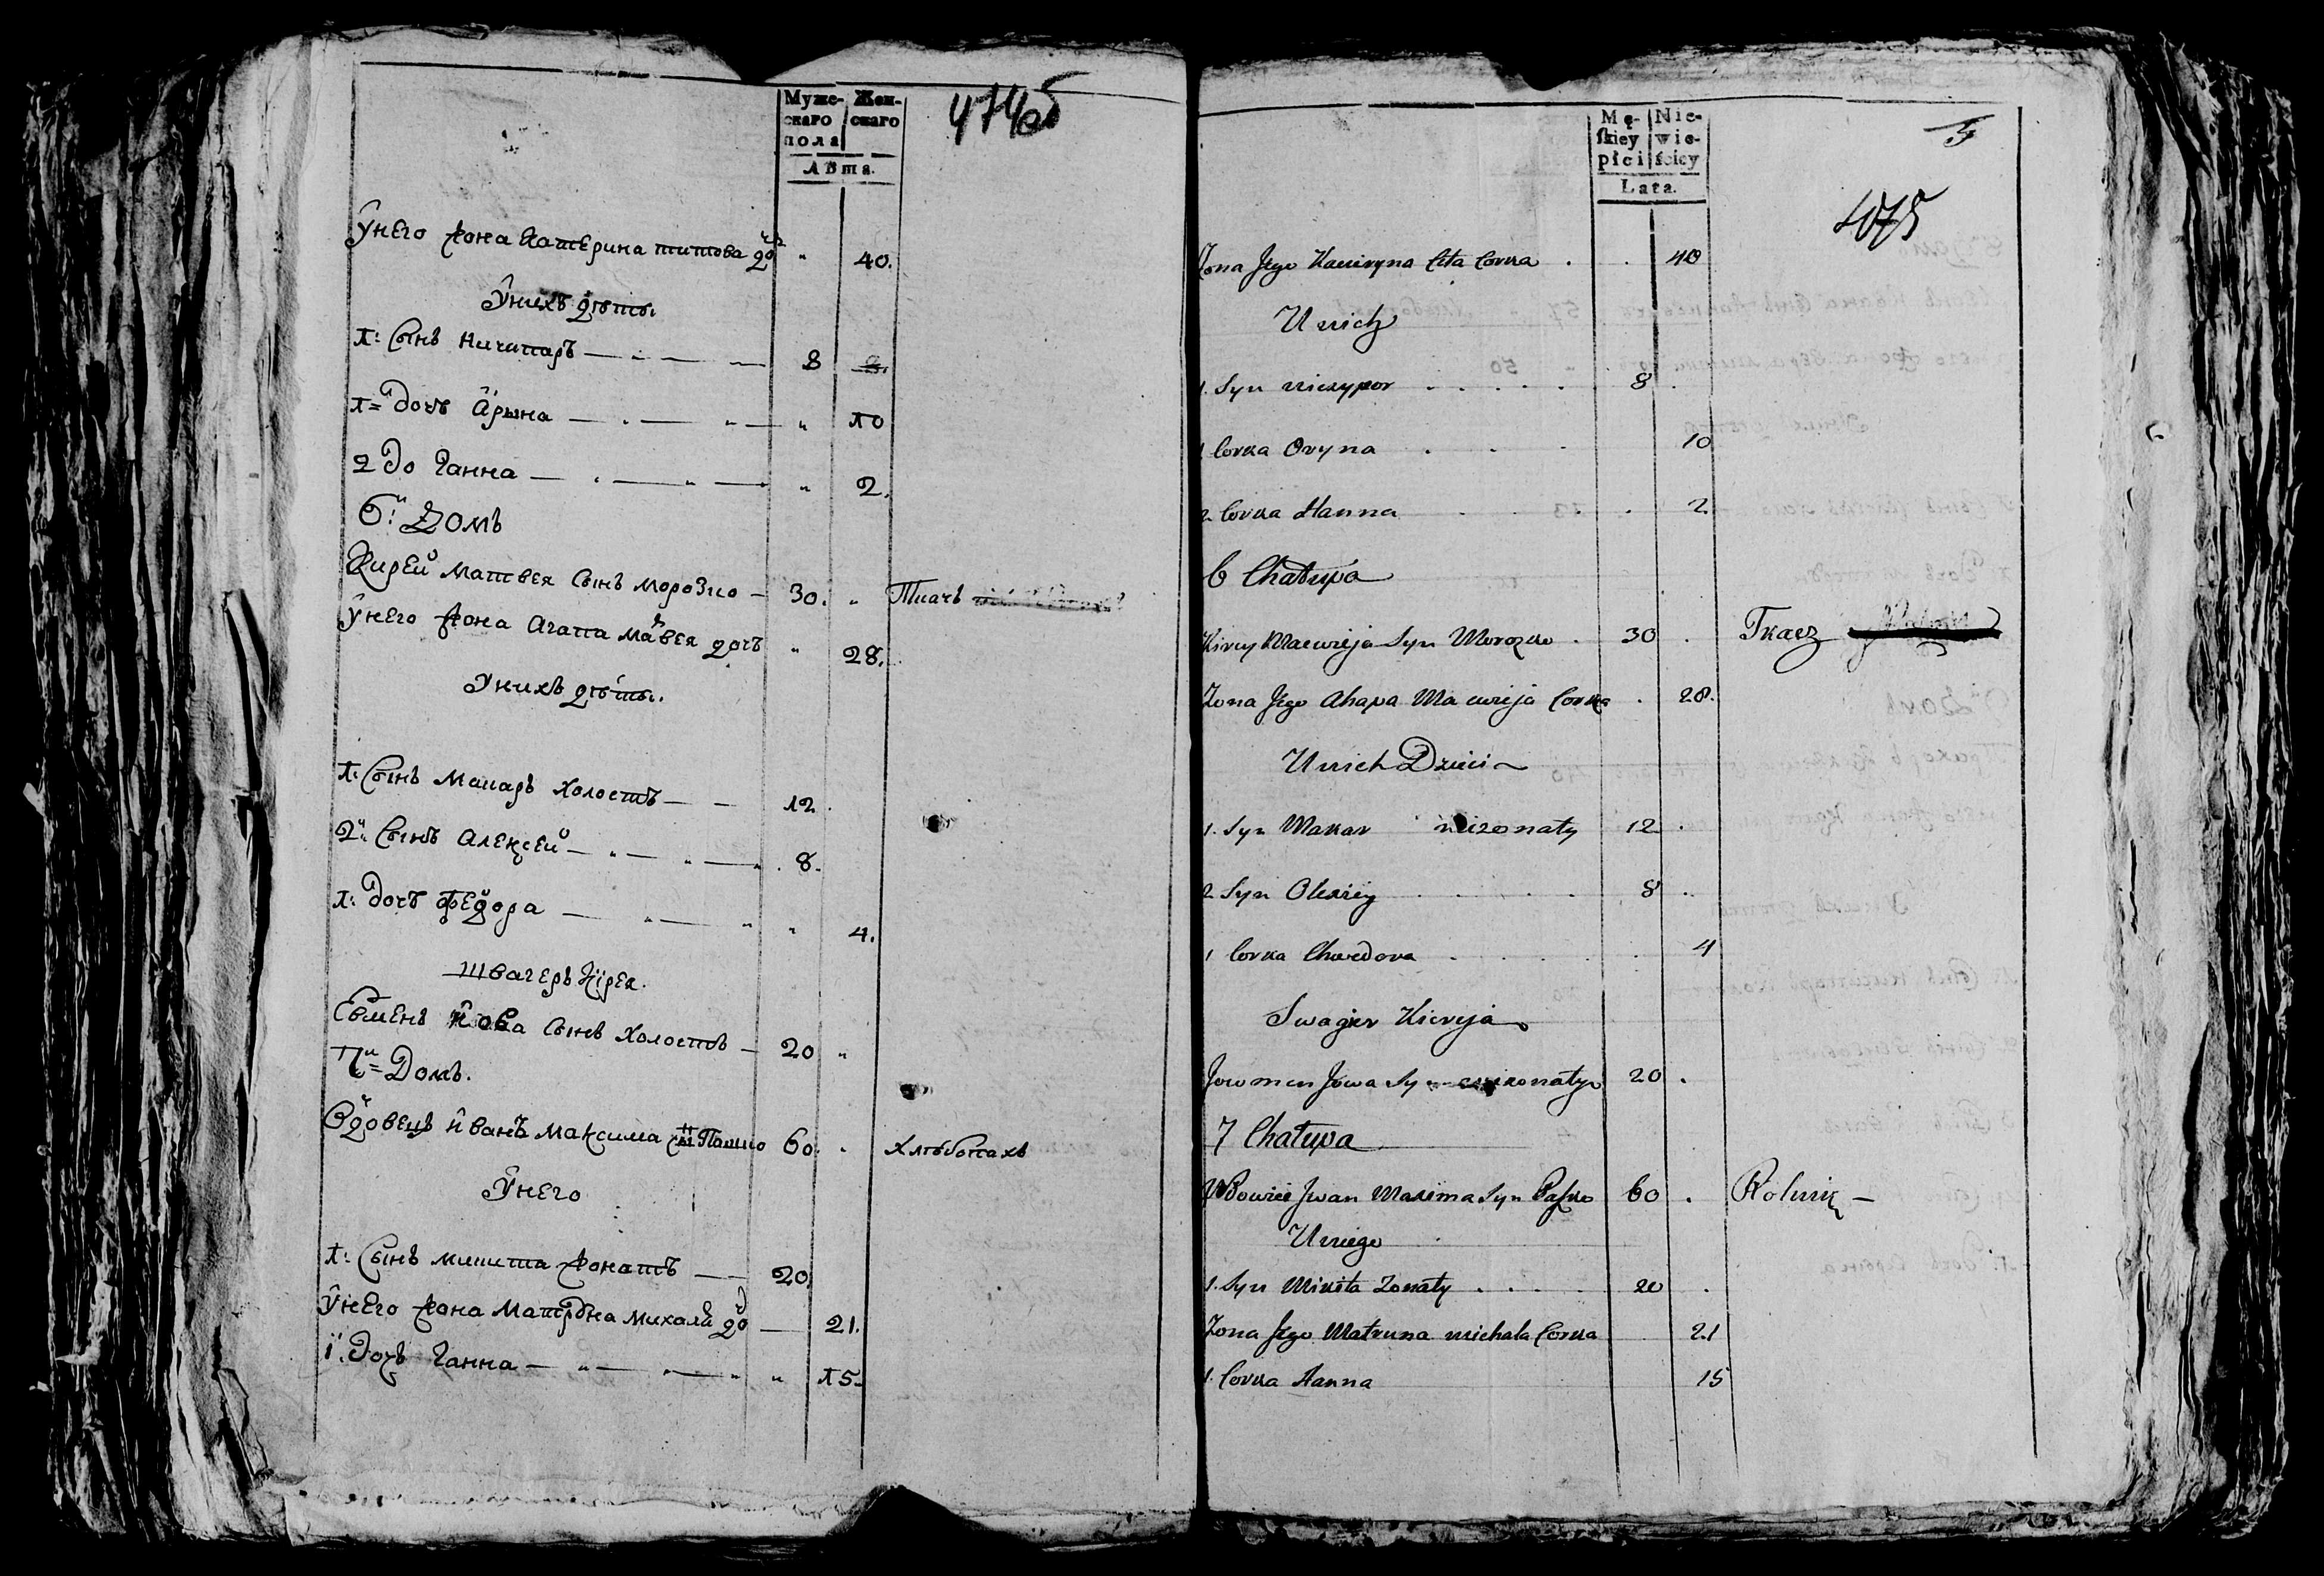 Муже-скаго пола Жен-скаго
Лѣта.
474об
Ўнего жона Катерина титова доч " 40.
Ўнихъ дѣти
1: Сынъ Ничипаръ 8
1= дочъ Арына " 10
2 до Ганна " 2.
6: Домъ
Кирей матвея Сынъ морозко 30. " Ткачъ
ўнего жона Агапа матвея дочъ " 28.
Унихъ дѣти.
1: Сынъ Макаръ холостъ 12.
2: Сынъ Алексей 8.
1: дочъ Федора " 4.
швагеръ Кірея.
Евменъ Иова Сынъ Холостъ 20 "
7= Домъ.
Вдовецъ Иванъ Максима сынъ Пашко 60. " Хлѣбопахъ
Ўнего
1: Сынъ микита жонатъ 20.
ўнего жона Матруна михала до 21.
1. Дочъ Ганна " 15.
Mę-skiey płci Nie-wie-ściey
Lata.
5
1075
Zona Jego Kateryna Tita Corka . . 40
U nich
1. Syn niczypor 8 .
1 Corka Oryna 10
2. Corka Hanna . 2
6 Chałupa
Kirey Maewieja Syn Morozko . 30 . Tkacz
Zona Jego Ahapa Maewieja Corka . 28.
U nich Dzieci
1. Syn Makar niezonaty 12 .
2 Syn Olexiey 8 .
1 Corka Chwedora . 4
Swagier Kireja
Jowmen Jowa Syn niezonaty 20 .
7 Chałupa
Wdowiec Jwan Maxima Syn Paszko 60 . Rolnik –
U niego
1. Syn Mikita Zonaty 20 .
Zona Jego Matruna michala Corka 21
1. Corka Hanna 15